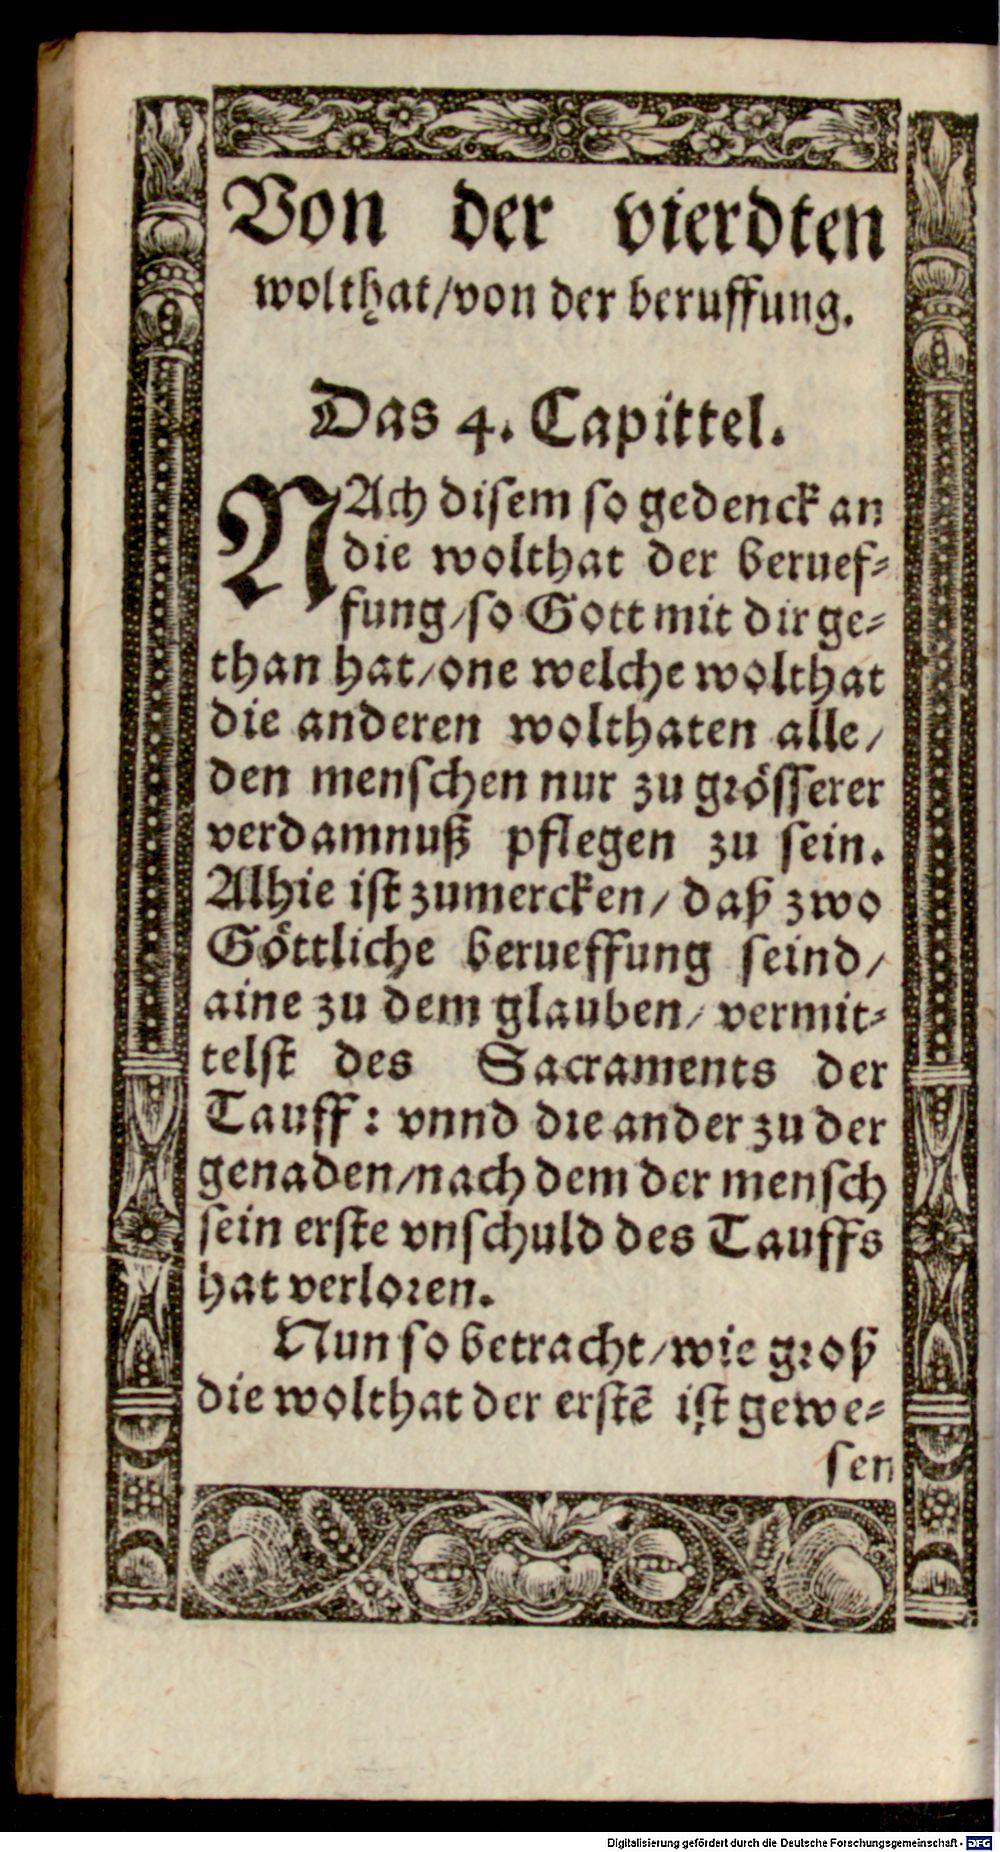 Von der vierdten
wolthat/von der beruffung.
Das 4. Capittel.
NAch disem so gedenck an
die wolthat der beruef⸗
fung/so Gott mit dir ge⸗
than hat/one welche wolthat
die anderen wolthaten alle/
den menschen nur zu grösserer
verdamnuß pflegen zu sein.
Alhie ist zumercken/daß zwo
Göttliche berueffung seind/
aine zu dem glauben/vermit⸗
telst des Sacraments der
Tauff: vnnd die ander zu der
genaden/nach dem der mensch
sein erste vnschuld des Tauffs
hat verloren.
Nun so betracht/wie groß
die wolthat der erstẽ ist gewe⸗
sen
Digitalisierung gefördert durch die Deutsche Forschungsgemeinschaft - DFG